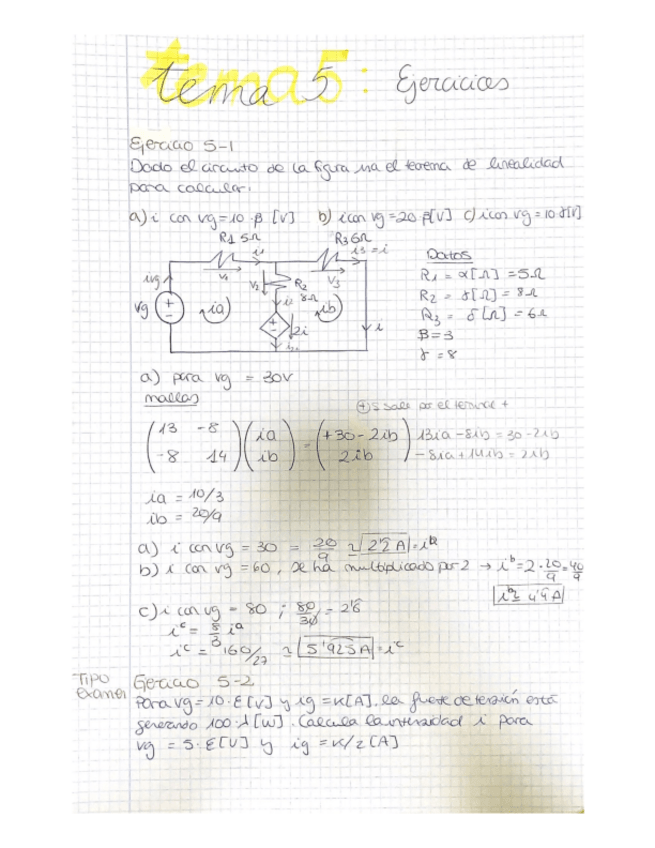 tema 5: Ejercicios
Ejercicio 5-1
Dado el circuito de la figura usa el teorema de linealidad
para calcular.
a) i con vg=10·β [V] b) i con vg=20·β[V] c) i con vg=10·γ[V]
R1 5Ω i1 R3 6Ω i3=i
v1 v3
ivg
vg + - ia v2 R2 8Ω i2 ib
+ - 2i i
Datos
R1 = α[Ω] = 5Ω
R2 = γ[Ω] = 8Ω
R3 = δ[Ω] = 6Ω
β=3
γ=8
a) para vg = 30V
mallas
⊕ si sale por el terminal +
(13 -8) (ia) = (+30 - 2ib) 13ia - 8ib = 30 - 2ib
(-8 14) (ib) (2ib) -8ia + 14ib = 2ib
ia = 10/3
ib = 20/9
a) i con vg = 30 = 20/9 ≃ 2'2 A = ia
b) i con vg = 60, se ha multiplicado por 2 → ib = 2·20/9 = 40/9
ib ≃ 4'4 A
c) i con vg = 80 ; 80/30 = 2'6
ic = 8/3 ia
ic = 160/27 ≃ 5'925 A = ic
TIPO
examen
Ejercicio 5-2
Para vg = 10·E[V] y ig = K[A]. la fuente de tensión está
generando 100·λ[W]. Calcula la intensidad i para
vg = 5·E[V] y ig = K/2 [A]